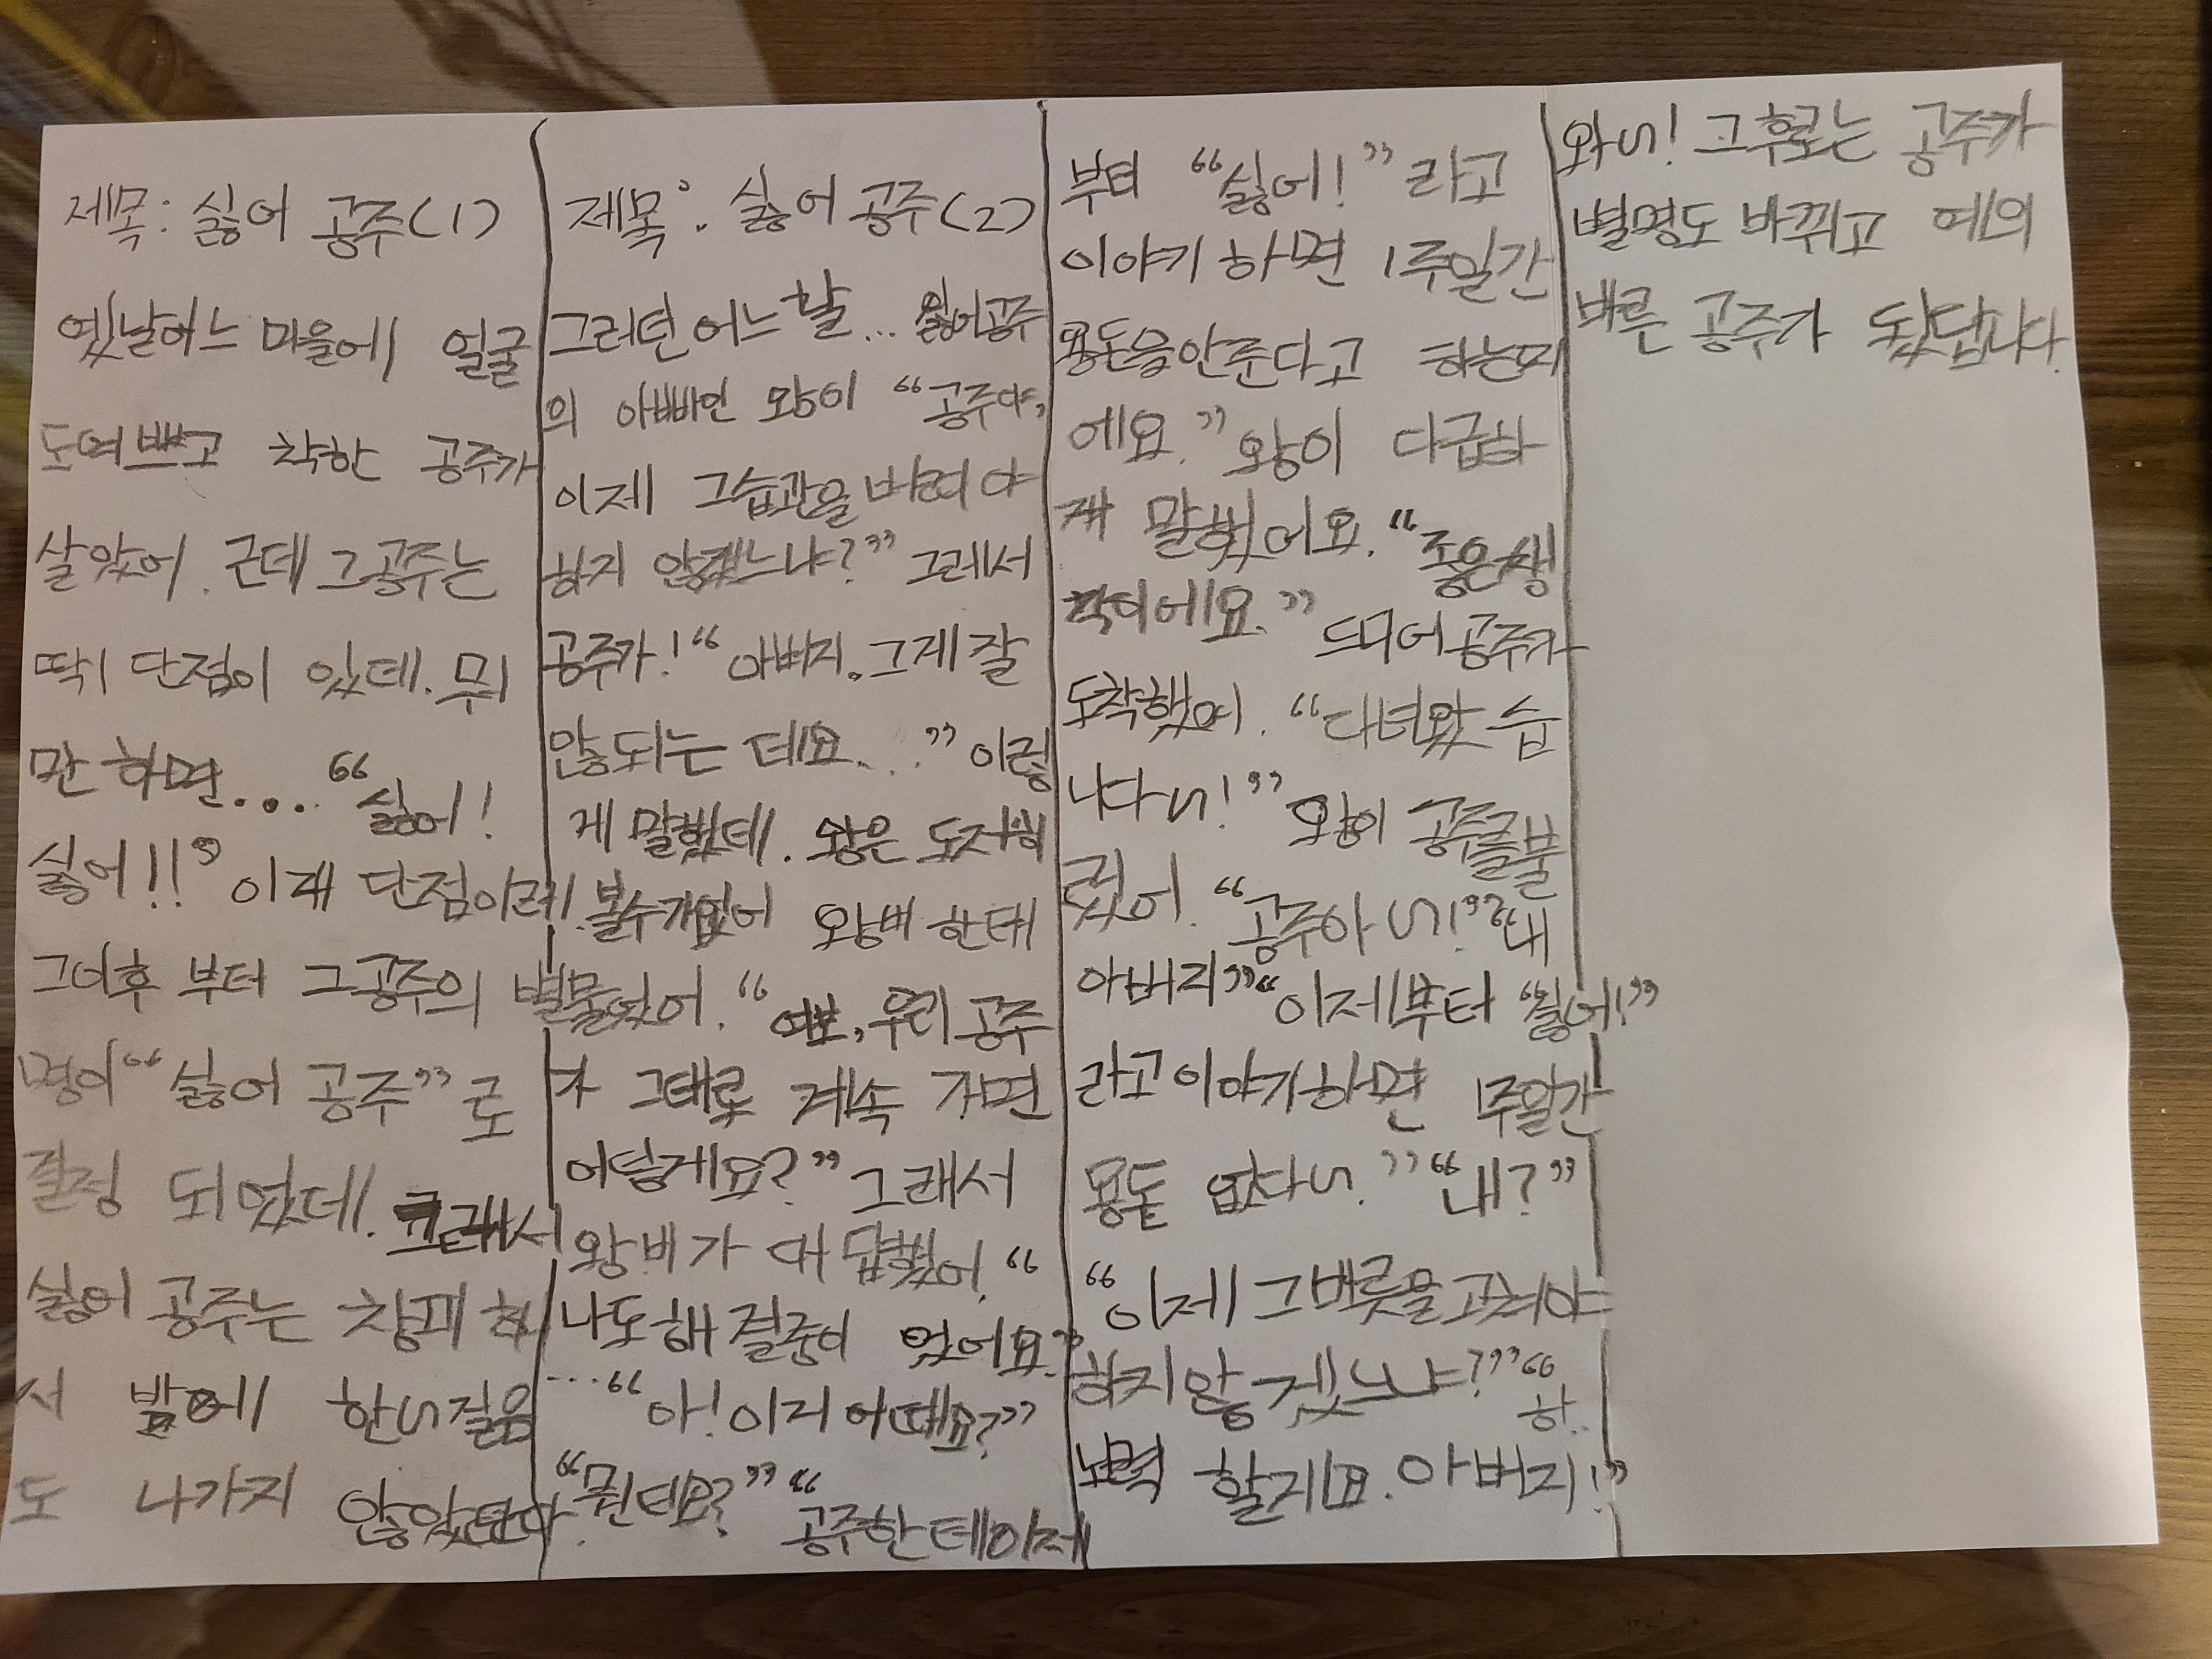 제목: 싫어 공주(1)
옜날어느 마을에 얼굴
도여쁘고 착한 공주가
살았어. 근데 그공주는
딱 단점이 있데. 뭐
만 하면... “싫어!
싫어!!” 이래 단점이래.
그이후 부터 그공주의 별
명이 “싫어 공주”로
결정 되었데. 그래서
싫어 공주는 창패 해
서 밖에 한거름
도 나가지 않았단다.
제목: 싫어 공주(2)
그러던 어느날... 싫어공주
의 아빠인 왕이 “공주야,
이제 그습관을 버려야
하지 않겠느냐?” 그래서
공주가! “아버지. 그게 잘
않되는 데요...” 이렇
게 말했데. 왕은 도저히
볼수가없어 왕비 한테
물었어. “여보, 우리 공주
가 그대로 계속 자면
어떻게요?” 그래서
왕비가 대답했어. “
나도해결중이 었어요.”
...“아! 이러 어때요?”
“뭔데요?” “공주한테이제
부터 “싫어!” 라고
이야기 하면 1주일간
용돈을안준다고 하는거
에요.” 왕이 다급하
개 말했어요. “좋은생
각이에요.” 드디어공주가
도착했어. “다녀왔습
니다~!” 왕이 공주를불
렀어. “공주야~!” “내
아버지” “이제부터 “싫어!”
라고이야기하면 1주일간
용돈 없다~.” “내?”
“이제 그버릇을고쳐야
하지않겠느냐?” “하..
노력 할게요. 아버지!”
와~! 그후로는 공주가
별명도 바뀌고 예의
바른 공주가 됐답니다.